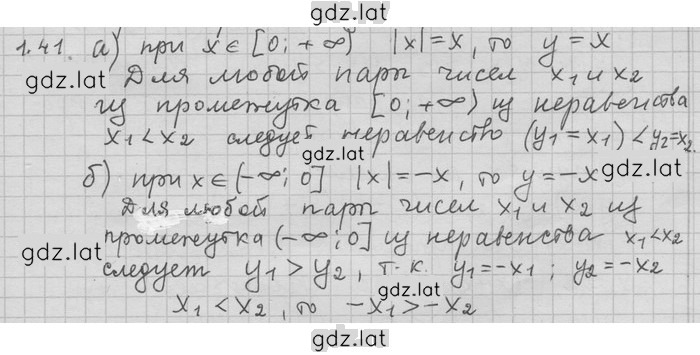 gdz.lat
1.41. а) при x ∈ [0; +∞) |x| = x, то y = x
gdz.lat Для любой пары чисел x₁ и x₂
из промежутка [0; +∞) из неравенства
x₁ < x₂ следует неравенство (y₁ = x₁) < y₂ = x₂.
gdz.lat
б) при x ∈ (-∞; 0] |x| = -x, то y = -x gdz.lat
Для любой пары чисел x₁ и x₂ из
gdz.lat промежутка (-∞; 0] из неравенства x₁ < x₂
следует y₁ > y₂, т.к. y₁ = -x₁; y₂ = -x₂
gdz.lat
x₁ < x₂, то -x₁ > -x₂
gdz.lat